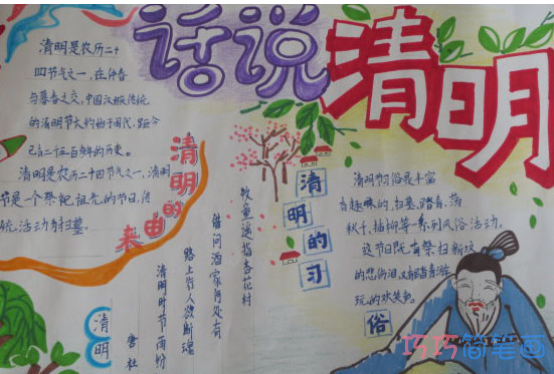 话说清明
清明是农历二十
四节气之一，在仲春
与暮春之交，中国汉族传统
的清明节大约始于周代，距今
已有二千五百多年的历史。
清明是农历二十四节气之一，清明
节是一个祭祀祖先的节日，传
统活动为扫墓。
清明的由来
清明节的习俗是丰富
有趣的，扫墓、踏青、荡
秋千、插柳等一系列风俗活动。
这节日既有祭扫新坟
的悲伤泪，又有踏青游
玩的欢笑声。
清明的习俗
清明
唐 杜
清明时节雨纷
路上行人欲断魂
借问酒家何处有
牧童遥指杏花村
巧巧简笔画